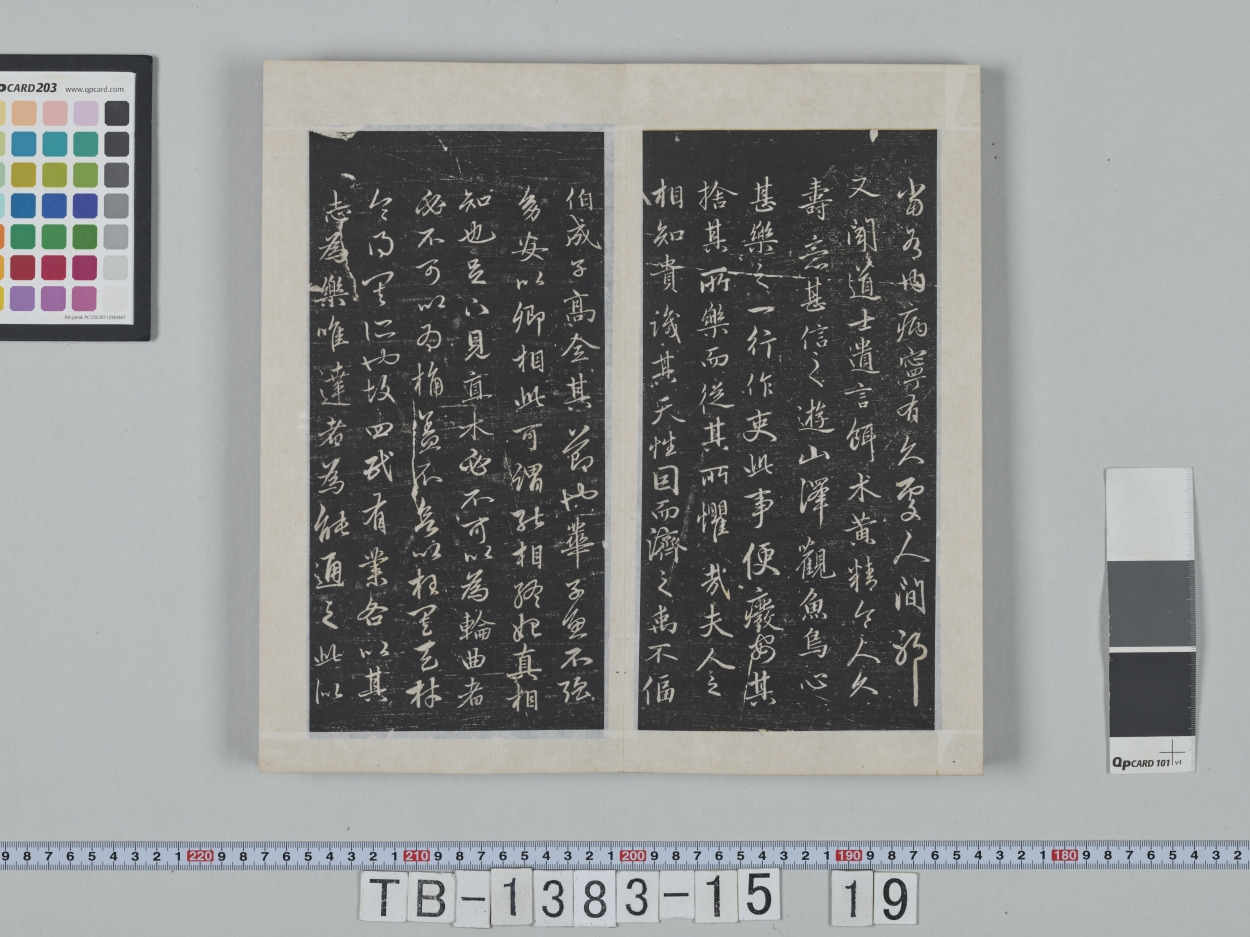 當有內病寧有久處人間邪
又聞道士遺言餌朮黃精令人久
壽意甚信之遊山澤觀魚鳥心
甚樂之一行作吏此事便癈安其
捨其所樂而從其所懼哉夫人之
相知貴識其天性因而濟之禹不偪
伯成子高全其節也華子魚不強
幼安以卿相此可謂能相終始真相
知也足下見直木必不可以為輪曲者
必不可以為桷蓋不欲以枉其天材
令得其所也故四民有業各以其
志為樂唯達者為能通之此似
QPCARD 203 www.qpcard.com
QPCARD 101 v4
9 8 7 6 5 4 3 2 1 220 9 8 7 6 5 4 3 2 1 210 9 8 7 6 5 4 3 2 1 200 9 8 7 6 5 4 3 2 1 190 9 8 7 6 5 4 3 2 1 180 9 8 7 6 5 4 3 2
TB-1383-15 19